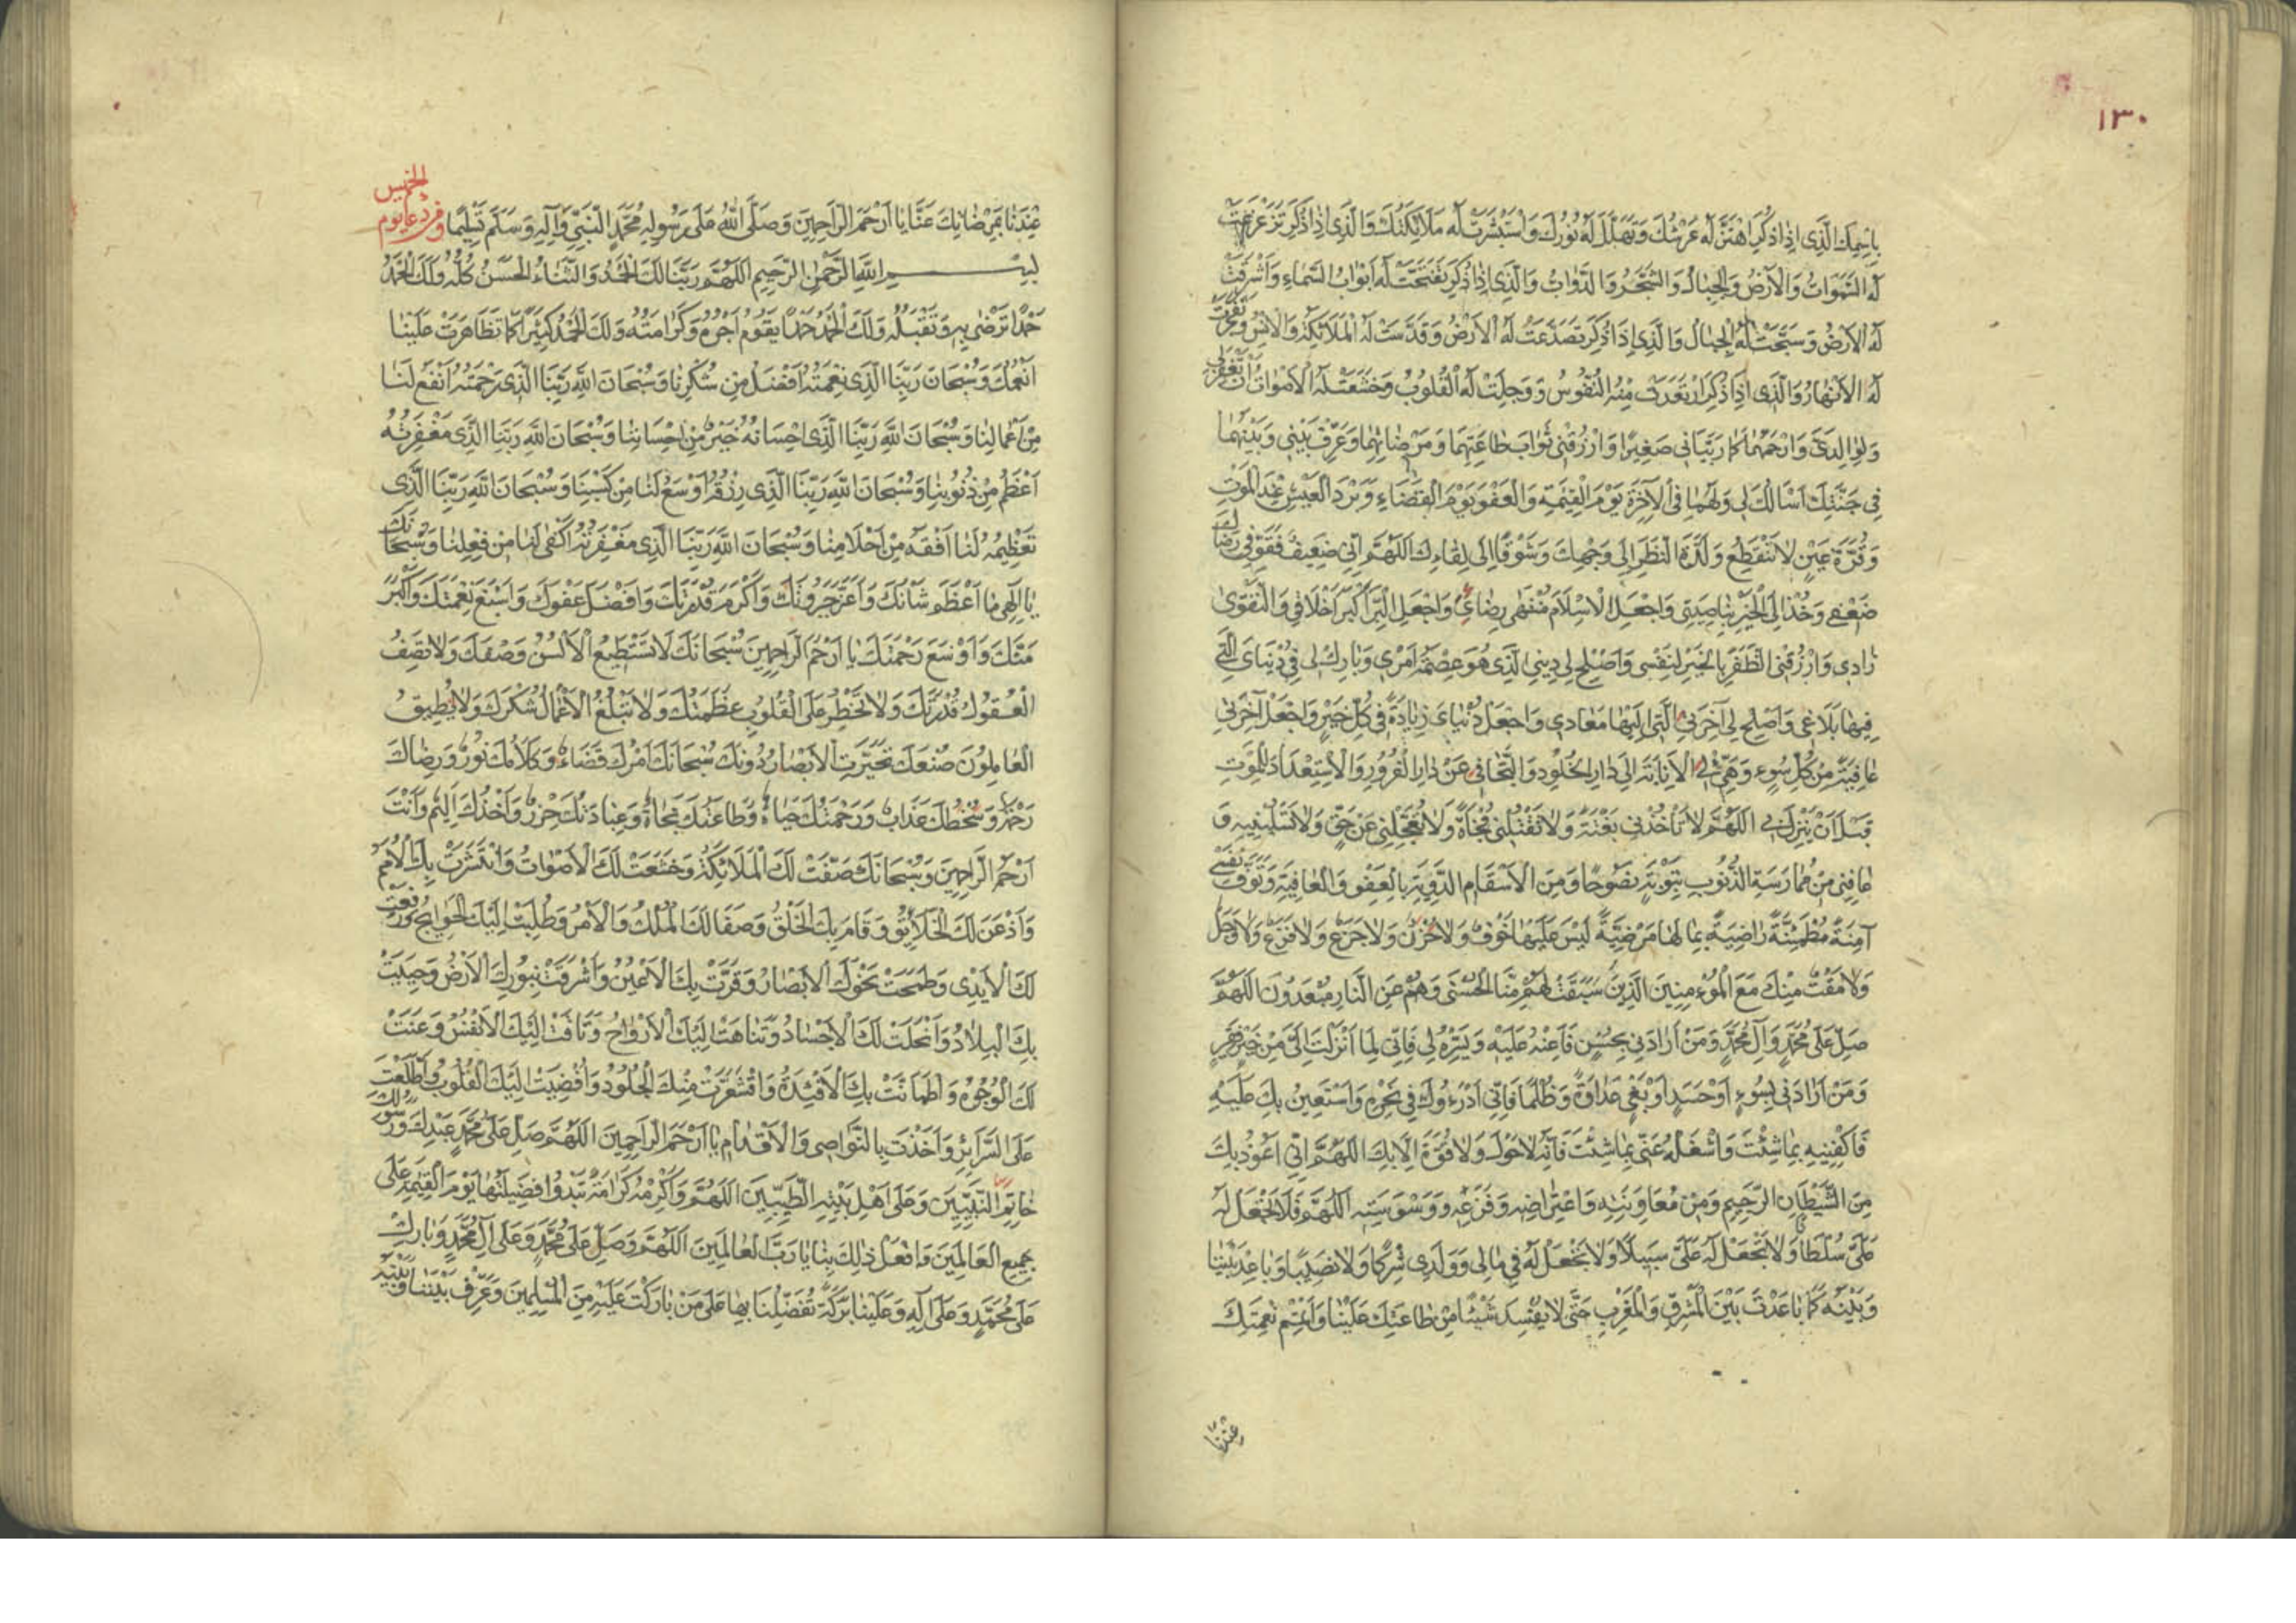 ١٣٠
بِاسْمِكَ الَّذِى اِذَا ذُكِرَ اهْتَزَّ لَهُ عَرْشُكَ وَتَهَلَّلَ لَهُ نُورُكَ وَاسْتَبْشَرَتْ لَهُ مَلَائِكَتُكَ وَالَّذِى اِذَا ذُكِرَ تَزَعْزَعَتْ
لَهُ السَّمَوَاتُ وَالْاَرْضُ وَالْجِبَالُ وَالشَّجَرُ وَالدَّوَابُّ وَالَّذِى اِذَا ذُكِرَ تَفَتَّحَتْ لَهُ اَبْوَابُ السَّمَاءِ وَاَشْرَقَتْ
لَهُ الْاَرْضُ وَسَبَّحَتْ لَهُ الْجِبَالُ وَالَّذِى اِذَا ذُكِرَ تَصَدَّعَتْ لَهُ الْاَرْضُ وَقَدَّسَتْ لَهُ الْمَلَائِكَةُ وَالْاِنْسُ وَتَفَجَّرَتْ
لَهُ الْاَنْهَارُ وَالَّذِى اِذَا ذُكِرَ ارْتَعَدَتْ مِنْهُ النُّفُوسُ وَوَجِلَتْ لَهُ الْقُلُوبُ وَخَشَعَتْ لَهُ الْاَصْوَاتُ اَنْ تَغْفِرَ لِى
وَلِوَالِدَىَّ وَارْحَمْهُمَا كَمَا رَبَّيَانِى صَغِيرًا وَارْزُقْنِى ثَوَابَ طَاعَتِهِمَا وَمَرْضَاتِهِمَا وَعَرِّفْ بَيْنِى وَبَيْنَهُمَا
فِى جَنَّتِكَ اَسْاَلُكَ لِى وَلَهُمَا فِى الْآخِرَةِ يَوْمَ الْقِيٰمَةِ وَالْعَفْوَ يَوْمَ الْقَضَاءِ وَبَرْدَ الْعَيْشِ عِنْدَ الْمَوْتِ
وَقُرَّةَ عَيْنٍ لَا تَنْقَطِعُ وَلَذَّةَ النَّظَرِ اِلَى وَجْهِكَ وَشَوْقًا اِلَى لِقَاءِكَ اَللّٰهُمَّ اِنِّى ضَعِيفٌ فَقَوِّ فِى رِضَاكَ
ضَعْفِى وَخُذْ اِلَى الْخَيْرِ بِنَاصِيَتِى وَاجْعَلِ الْاِسْلَامَ مُنْتَهَى رِضَائِى وَاجْعَلِ الْبِرَّ اَكْبَرَ اَخْلَاقِى وَالتَّقْوَى
زَادِى وَارْزُقْنِى الظَّفَرَ بِالْخَيْرِ لِنَفْسِى وَاَصْلِحْ لِى دِينِىَ الَّذِى هُوَ عِصْمَةُ اَمْرِى وَبَارِكْ لِى فِى دُنْيَاىَ الَّتِى
فِيهَا بَلَاغِى وَاَصْلِحْ لِى آخِرَتِىَ الَّتِى اِلَيْهَا مَعَادِى وَاجْعَلْ دُنْيَاىَ زِيَادَةً فِى كُلِّ خَيْرٍ وَاجْعَلْ آخِرَتِى
عَافِيَةً مِنْ كُلِّ سُوءٍ وَهَيِّئْ لِىَ الْاِنَابَةَ اِلَى دَارِ الْخُلُودِ وَالتَّجَافِىَ عَنْ دَارِ الْغُرُورِ وَالْاِسْتِعْدَادَ لِلْمَوْتِ
قَبْلَ اَنْ يَنْزِلَ بِى اَللّٰهُمَّ لَا تَاْخُذْنِى بَغْتَةً وَلَا تَقْتُلْنِى فُجْاَةً وَلَا تُعَجِّلْنِى عَنْ حَقٍّ وَلَا تَسْلُبْنِيهِ وَ
عَافِنِى مِنْ مُمَارَسَةِ الذُّنُوبِ بِتَوْبَةٍ نَصُوحًا وَمِنَ الْاَسْقَامِ الدَّوِيَّةِ بِالْعَفْوِ وَالْعَافِيَةِ وَتَوَفَّ نَفْسِى
آمِنَةً مُطْمَئِنَّةً رَاضِيَةً بِمَا لَهَا مَرْضِيَّةً لَيْسَ عَلَيْهَا خَوْفٌ وَلَا حُزْنٌ وَلَا جَزَعٌ وَلَا فَزَعٌ وَلَا وَجَلٌ
وَلَا مَقْتٌ مِنْكَ مَعَ الْمُؤْمِنِينَ الَّذِينَ سَبَقَتْ لَهُمْ مِنَّا الْحُسْنَى وَهُمْ عَنِ النَّارِ مُبْعَدُونَ اَللّٰهُمَّ
صَلِّ عَلَى مُحَمَّدٍ وَآلِ مُحَمَّدٍ وَمَنْ اَرَادَنِى بِحُسْنٍ فَاَعِنْهُ عَلَيْهِ وَيَسِّرْهُ لِى فَاِنِّى لِمَا اَنْزَلْتَ اِلَىَّ مِنْ خَيْرٍ فَقِيرٌ
وَمَنْ اَرَادَنِى بِسُوءٍ اَوْ حَسَدٍ اَوْ بَغْىٍ عَدَاوَةً وَظُلْمًا فَاِنِّى اَدْرَءُوكَ فِى نَحْرِهِ وَاَسْتَعِينُ بِكَ عَلَيْهِ
فَاكْفِنِيهِ بِمَا شِئْتَ وَاشْغَلْهُ عَنِّى بِمَا شِئْتَ فَاِنَّهُ لَا حَوْلَ وَلَا قُوَّةَ اِلَّا بِكَ اَللّٰهُمَّ اِنِّى اَعُوذُ بِكَ
مِنَ الشَّيْطَانِ الرَّجِيمِ وَمِنْ مُعَاوَنَتِهِ وَاعْتِرَاضِهِ وَفَزَعِهِ وَوَسْوَسَتِهِ اَللّٰهُمَّ فَلَا تَجْعَلْ لَهُ
عَلَىَّ سُلْطَانًا وَلَا تَجْعَلْ لَهُ عَلَىَّ سَبِيلًا وَلَا تَجْعَلْ لَهُ فِى مَالِى وَوَلَدِى شِرْكًا وَلَا نَصِيبًا وَبَاعِدْ بَيْنَنَا
وَبَيْنَهُ كَمَا بَاعَدْتَ بَيْنَ الْمَشْرِقِ وَالْمَغْرِبِ حَتَّى لَا يُفْسِدَ شَيْئًا مِنْ طَاعَتِكَ عَلَيْنَا وَاَتْمِمْ نِعْمَتَكَ
عِنْدَنَا
عِنْدَنَا بِمَرْضَاتِكَ عَنَّا يَا اَرْحَمَ الرَّاحِمِينَ وَصَلَّى اللّٰهُ عَلَى رَسُولِهِ مُحَمَّدٍ النَّبِىِّ وَآلِهِ وَسَلَّمَ تَسْلِيمًا دعا يوم الخميس
بِسْمِ اللّٰهِ الرَّحْمٰنِ الرَّحِيمِ اَللّٰهُمَّ رَبَّنَا لَكَ الْحَمْدُ وَالثَّنَاءُ الْحَسَنُ كُلُّهُ وَلَكَ الْحَمْدُ
حَمْدًا تَرْضَى بِهِ وَتَقْبَلُهُ وَلَكَ الْحَمْدُ حَمْدًا يَقُومُ اَجْرُهُ وَكَرَامَتُهُ وَلَكَ الْحَمْدُ كَثِيرًا كَمَا تَظَاهَرَتْ عَلَيْنَا
اَنْعُمُكَ وَسُبْحَانَ رَبِّنَا الَّذِى نِعْمَتُهُ اَفْضَلُ مِنْ شُكْرِنَا وَسُبْحَانَ اللّٰهِ رَبِّنَا الَّذِى رَحْمَتُهُ اَنْفَعُ لَنَا
مِنْ اَعْمَالِنَا وَسُبْحَانَ اللّٰهِ رَبِّنَا الَّذِى اِحْسَانُهُ خَيْرٌ مِنْ اِحْسَانِنَا وَسُبْحَانَ اللّٰهِ رَبِّنَا الَّذِى مَغْفِرَتُهُ
اَعْظَمُ مِنْ ذُنُوبِنَا وَسُبْحَانَ اللّٰهِ رَبِّنَا الَّذِى رِزْقُهُ اَوْسَعُ لَنَا مِنْ كَسْبِنَا وَسُبْحَانَ اللّٰهِ رَبِّنَا الَّذِى
تَعْظِيمُهُ لَنَا اَفْقَهُ مِنْ اَحْلَامِنَا وَسُبْحَانَ اللّٰهِ رَبِّنَا الَّذِى مَغْفِرَتُهُ اَكْفَى لَنَا مِنْ فِعْلِنَا وَسُبْحَانَكَ
يَا اِلٰهِى مَا اَعْظَمَ شَانَكَ وَاَعَزَّ جَبَرُوتَكَ وَاَكْرَمَ قُدْرَتَكَ وَاَفْضَلَ عَفْوَكَ وَاَسْبَغَ نِعْمَتَكَ وَاَكْبَرَ
مَنَّكَ وَاَوْسَعَ رَحْمَتَكَ يَا اَرْحَمَ الرَّاحِمِينَ سُبْحَانَكَ لَا تَسْتَطِيعُ الْاَلْسُنُ وَصْفَكَ وَلَا تَصِفُ
الْعُقُولُ قُدْرَتَكَ وَلَا تَخْطُرُ عَلَى الْقُلُوبِ عَظَمَتُكَ وَلَا تَبْلُغُ الْاَعْمَالُ شُكْرَكَ وَلَا يُطِيقُ
الْعَامِلُونَ صُنْعَكَ تَحَيَّرَتِ الْاَبْصَارُ دُونَكَ سُبْحَانَكَ اَمْرُكَ قَضَاءٌ وَكَلَامُكَ نُورٌ وَرِضَاكَ
رَحْمَةٌ وَسَخَطُكَ عَذَابٌ وَرَحْمَتُكَ حَيَاةٌ وَطَاعَتُكَ نَجَاةٌ وَعِبَادَتُكَ حِرْزٌ وَاَخْذُكَ اَلِيمٌ وَاَنْتَ
اَرْحَمُ الرَّاحِمِينَ وَسُبْحَانَكَ صَفَّتْ لَكَ الْمَلَائِكَةُ وَخَشَعَتْ لَكَ الْاَصْوَاتُ وَانْتَشَرَتْ بِكَ الْاُمَمُ
وَاَذْعَنَ لَكَ الْخَلَائِقُ وَقَامَ بِكَ الْخَلْقُ وَصَفَا لَكَ الْمُلْكُ وَالْاَمْرُ وَطُلِبَتْ اِلَيْكَ الْحَوَائِجُ وَرُفِعَتْ
لَكَ الْاَيْدِى وَطَمَحَتْ نَحْوَكَ الْاَبْصَارُ وَقَرَّتْ بِكَ الْاَعْيُنُ وَاَشْرَقَتْ بِنُورِكَ الْاَرْضُ وَحَيِيَتْ
بِكَ الْبِلَادُ وَانْحَلَتْ لَكَ الْاَجْسَادُ وَتَنَاهَتْ اِلَيْكَ الْاَرْوَاحُ وَتَاقَتْ اِلَيْكَ الْاَنْفُسُ وَعَنَتْ
لَكَ الْوُجُوهُ وَاطْمَاَنَّتْ بِكَ الْاَفْئِدَةُ وَاقْشَعَرَّتْ مِنْكَ الْجُلُودُ وَاُفْضِيَتْ اِلَيْكَ الْقُلُوبُ وَاطَّلَعْتَ
عَلَى السَّرَائِرِ وَاَخَذْتَ بِالنَّوَاصِى وَالْاَقْدَامِ يَا اَرْحَمَ الرَّاحِمِينَ اَللّٰهُمَّ صَلِّ عَلَى مُحَمَّدٍ عَبْدِكَ وَرَسُولِكَ
خَاتِمِ النَّبِيِّينَ وَعَلَى اَهْلِ بَيْتِهِ الطَّيِّبِينَ اَللّٰهُمَّ وَاَكْرِمْهُ كَرَامَةً تَبْدُو فَضِيلَتُهَا يَوْمَ الْقِيٰمَةِ عَلَى
جَمِيعِ الْعَالَمِينَ وَافْعَلْ ذٰلِكَ بِنَا يَا رَبَّ الْعَالَمِينَ اَللّٰهُمَّ وَصَلِّ عَلَى مُحَمَّدٍ وَعَلَى آلِ مُحَمَّدٍ وَبَارِكْ
عَلَى مُحَمَّدٍ وَعَلَى آلِهِ وَعَلَيْنَا بَرَكَةً تُفَضِّلُنَا بِهَا عَلَى مَنْ بَارَكْتَ عَلَيْهِ مِنَ الْمُسْلِمِينَ وَعَرِّفْ بَيْنَنَا وَبَيْنَهُ